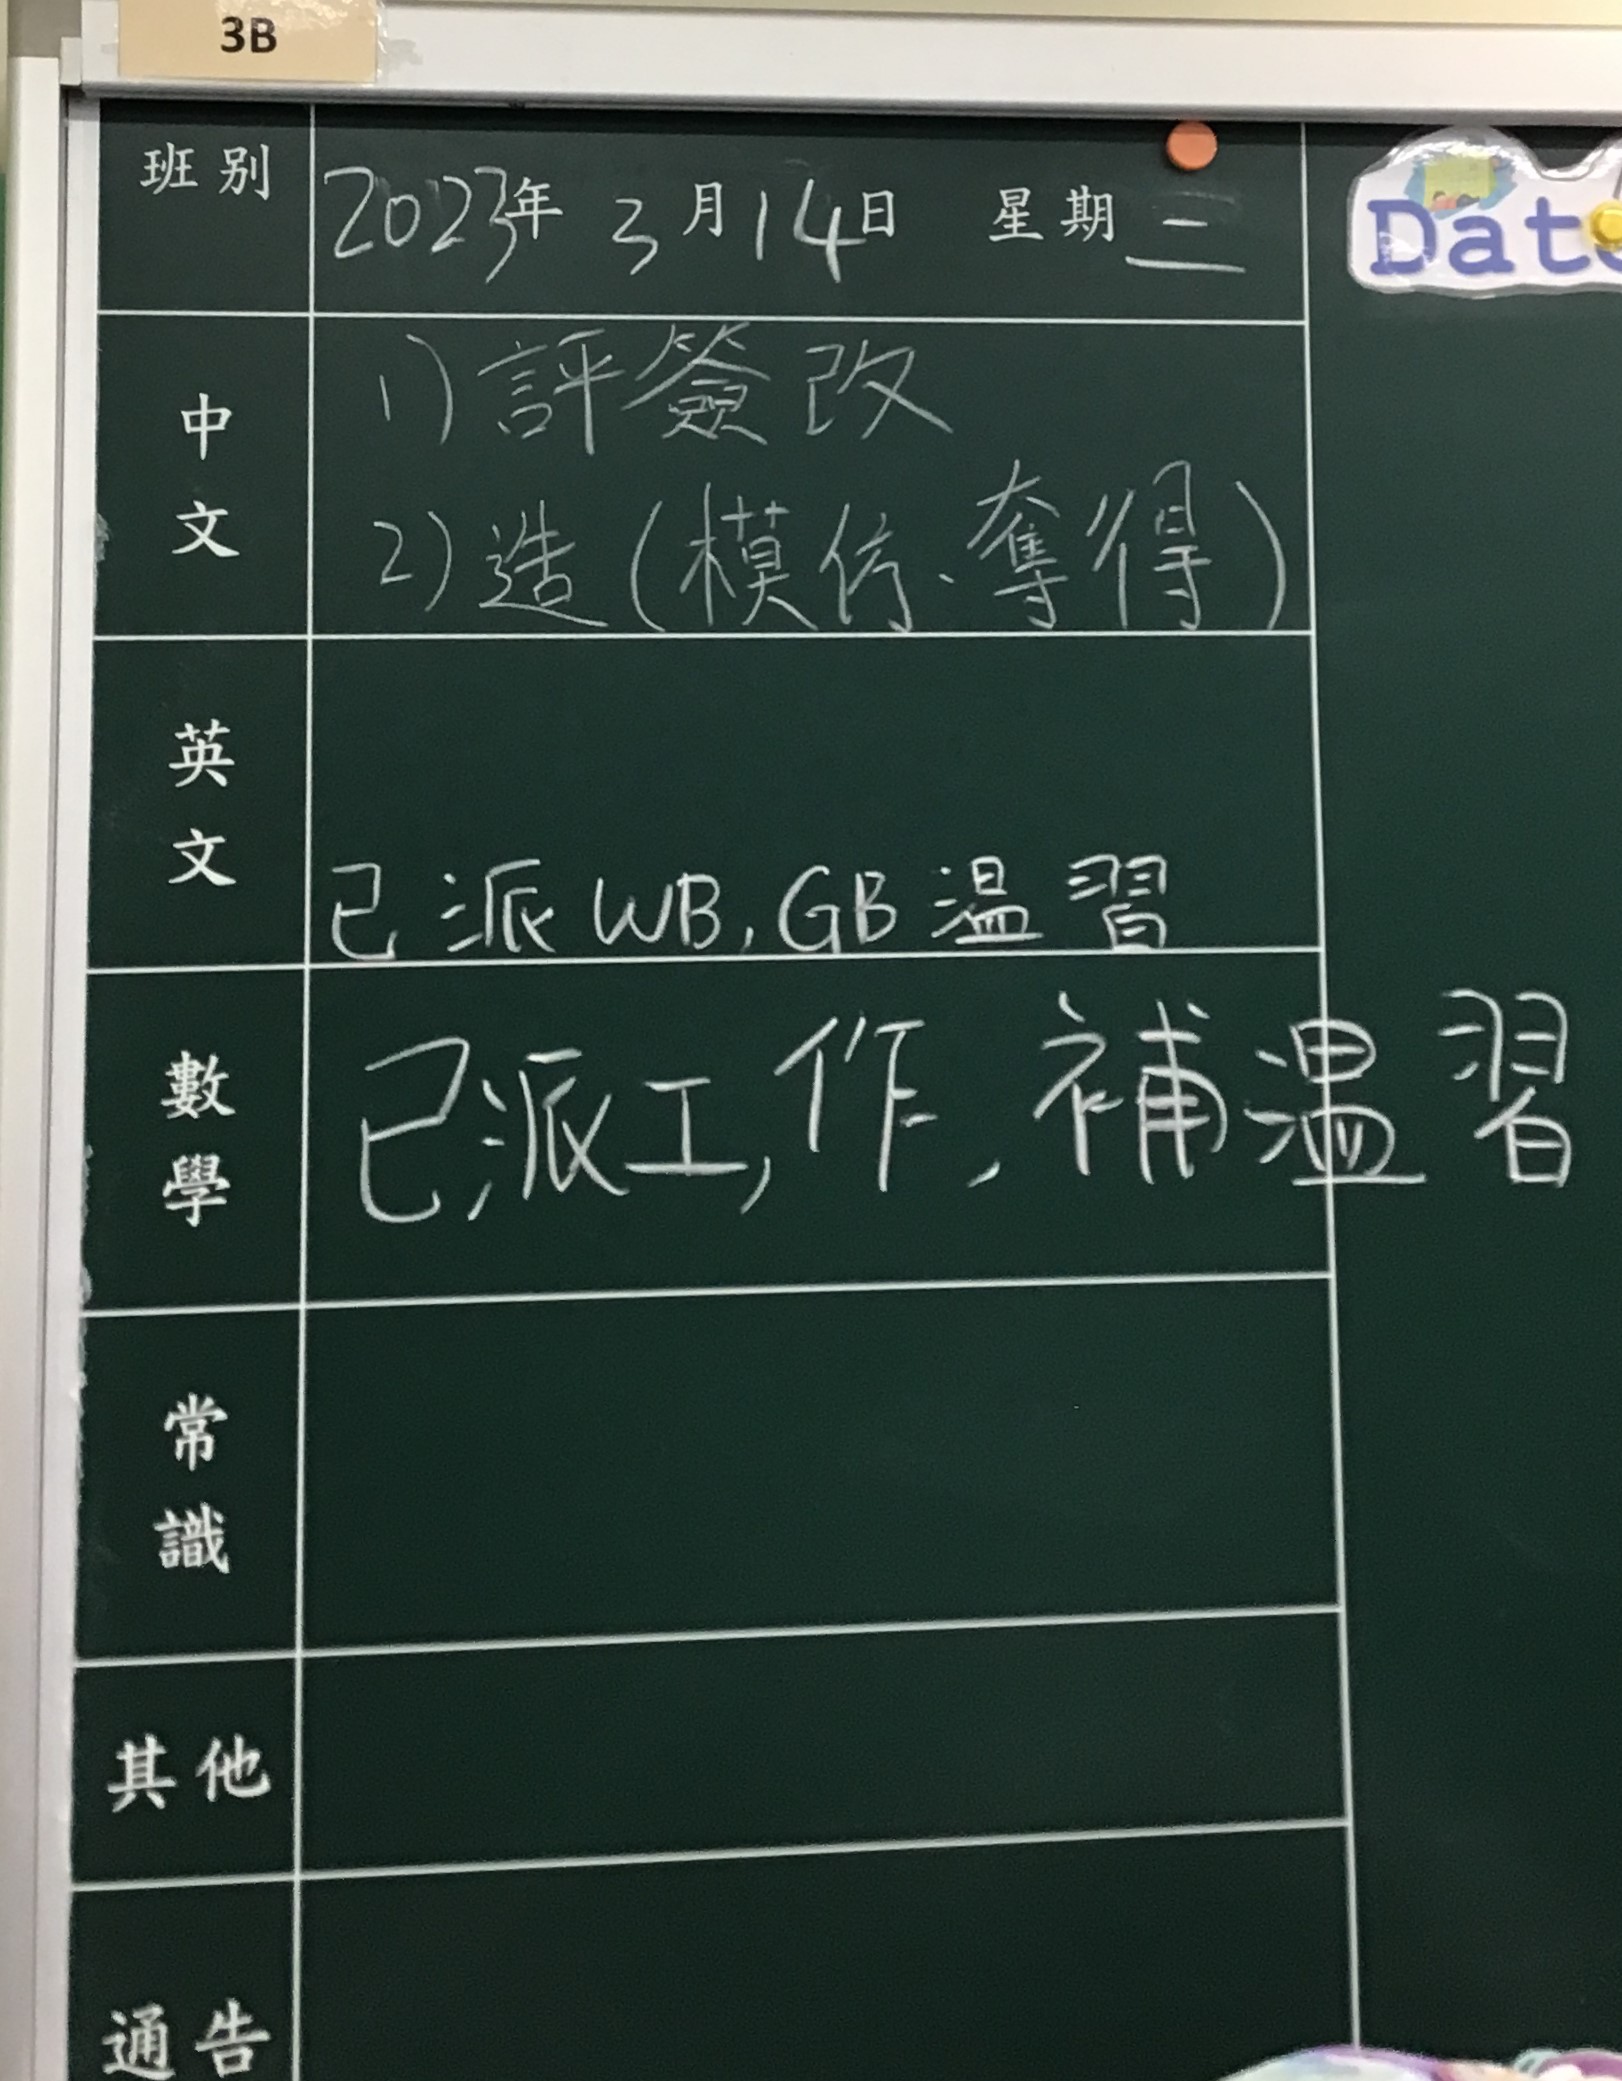 3B
班別 2023年 3月14日 星期二
Date
中文
1) 評簽改
2) 造(模仿、奪得)
英文
已派 WB, GB 溫習
數學
已派工, 作, 補溫習
常識
其他
通告